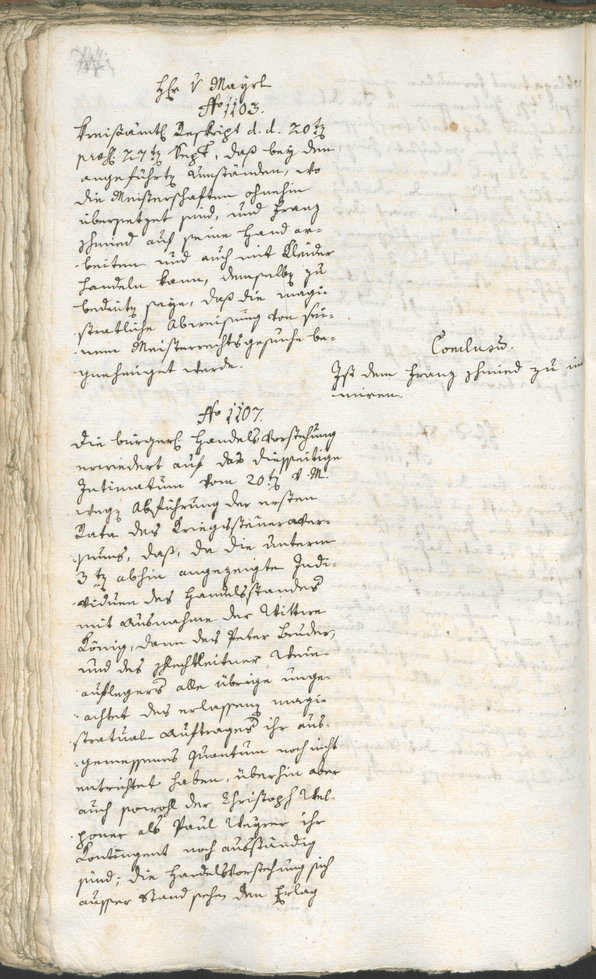 Hr v Mayrl
No 1103.
Kreißämtl Reskript d. d. 20tz
proß 27tz Sept, daß bey den
angeführtz Umständen, wo
die Meisterschaften ohnehin
übersetzet sind, und Franz
Schmied auf seine Hand ar-
beiten und auch mit Kleider
handeln kann, demselbz zu
bedeutz seye, daß die magi-
stratliche Abweisung von sei-
nem Meisterrechtsgesuche be-
gnehmiget werde.
Conclusu.
Ist dem Franz Schmied zu in-
timiren.
No 1107.
Die bürgerl Handelsvorstehung
erwiedert auf das diesseitige
Intimatum vom 20tz v. M.
wegz Abführung der ersten
Rata des Kriegssteueraver-
sums, daß, da die unterm
3tz abhin angezeigte Indi-
viduen des Handelsstandes
mit Ausnahme der Wittwe
König, dann des Peter Bruder,
und des Schlechtleitner Wein-
auflegers alle übrige unge-
achtet des erlassenen magi-
stratual-Auftrages ihr aus-
gemessenes Quantum noch nicht
entrichtet haben, überhin aber
auch sowohl der Christoph Wel-
poner als Paul Weyrer ihr
Kontingent noch ausständig
sind; die Handelsvorstehung sich
ausser Stand sehe den Erlag